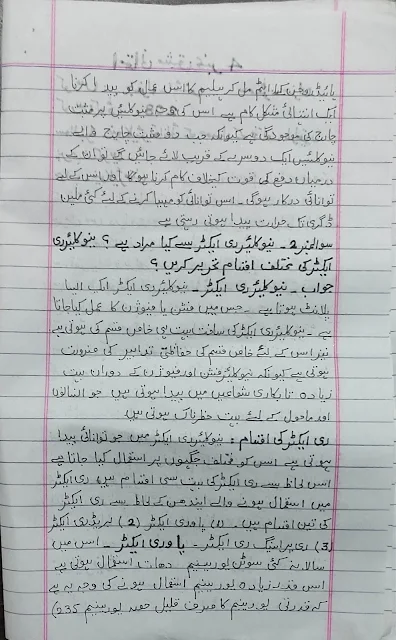 ہائیڈروجن کے ایٹم مل کر ہیلیم کا اس عمل کو پیدا کرنا
ایک انتہائی مشکل کام ہے اس کی وجہ نیوکلیئس پر مثبت
چارج کی موجودگی ہے کیونکہ جب دو مثبت چارج والے
نیوکلیئس ایک دوسرے کے قریب لائے جائیں گے تو ان کے
درمیان دفع کی قوت کیخلاف کام کرنا ہوگا اور اس کے لیے
توانائی درکار ہوگی۔ اس توانائی کو مہیا کرنے کے لئے کئی ملین
ڈگری تک حرارت پیدا ہوتی رہتی ہے
سوالنمبر 2۔ نیوکلیئر ری ایکٹر سے کیا مراد ہے؟ نیوکلیئر ری
ایکٹر کی مختلف اقسام تحریر کریں؟
جواب۔ نیوکلیئر ری ایکٹر۔ نیوکلیئر ری ایکٹر ایک ایسا
پلانٹ ہوتا ہے۔ جس میں فشن یا فیوژن کا عمل کیا جاتا
ہے۔ نیوکلیئر ری ایکٹر کی ساخت بہت ہی خاص قسم کی ہوتی ہے
نیز اس کے لئے خاص قسم کی حفاظتی تدابیر کی ضرورت
ہوتی ہے کیونکہ نیوکلیئر فشن اور فیوژن کے دوران بہت
زیادہ تابکاری شعاعیں میں پیدا ہوتی ہیں جو انسانوں
اور ماحول کے لئے بہت خطرناک ہوتی ہیں
ری ایکٹر کی اقسام: نیوکلیئر ری ایکٹر میں جو توانائی پیدا
ہوتی ہے اس کو مختلف جگہوں پر استعمال کیا جاتا ہے
اس لحاظ سے ری ایکٹر کی بہت سی اقسام ہیں ری ایکٹر
میں استعمال ہونے والے ایندھن کے لحاظ سے ری ایکٹر
کی تین اقسام ہیں۔ (1) پاور ری ایکٹر (2) بریڈر ری ایکٹر
(3) ری پراسیسنگ ری ایکٹر۔ پاور ری ایکٹر۔ اس میں
سالانہ کئی سوٹن یورینیم دھات استعمال ہوتی ہے
اس قدر زیادہ یورینیم استعمال ہونے کی وجہ یہ ہے
کہ قدرتی یورینیم کا صرف قلیل حصہ یورینیم 235)